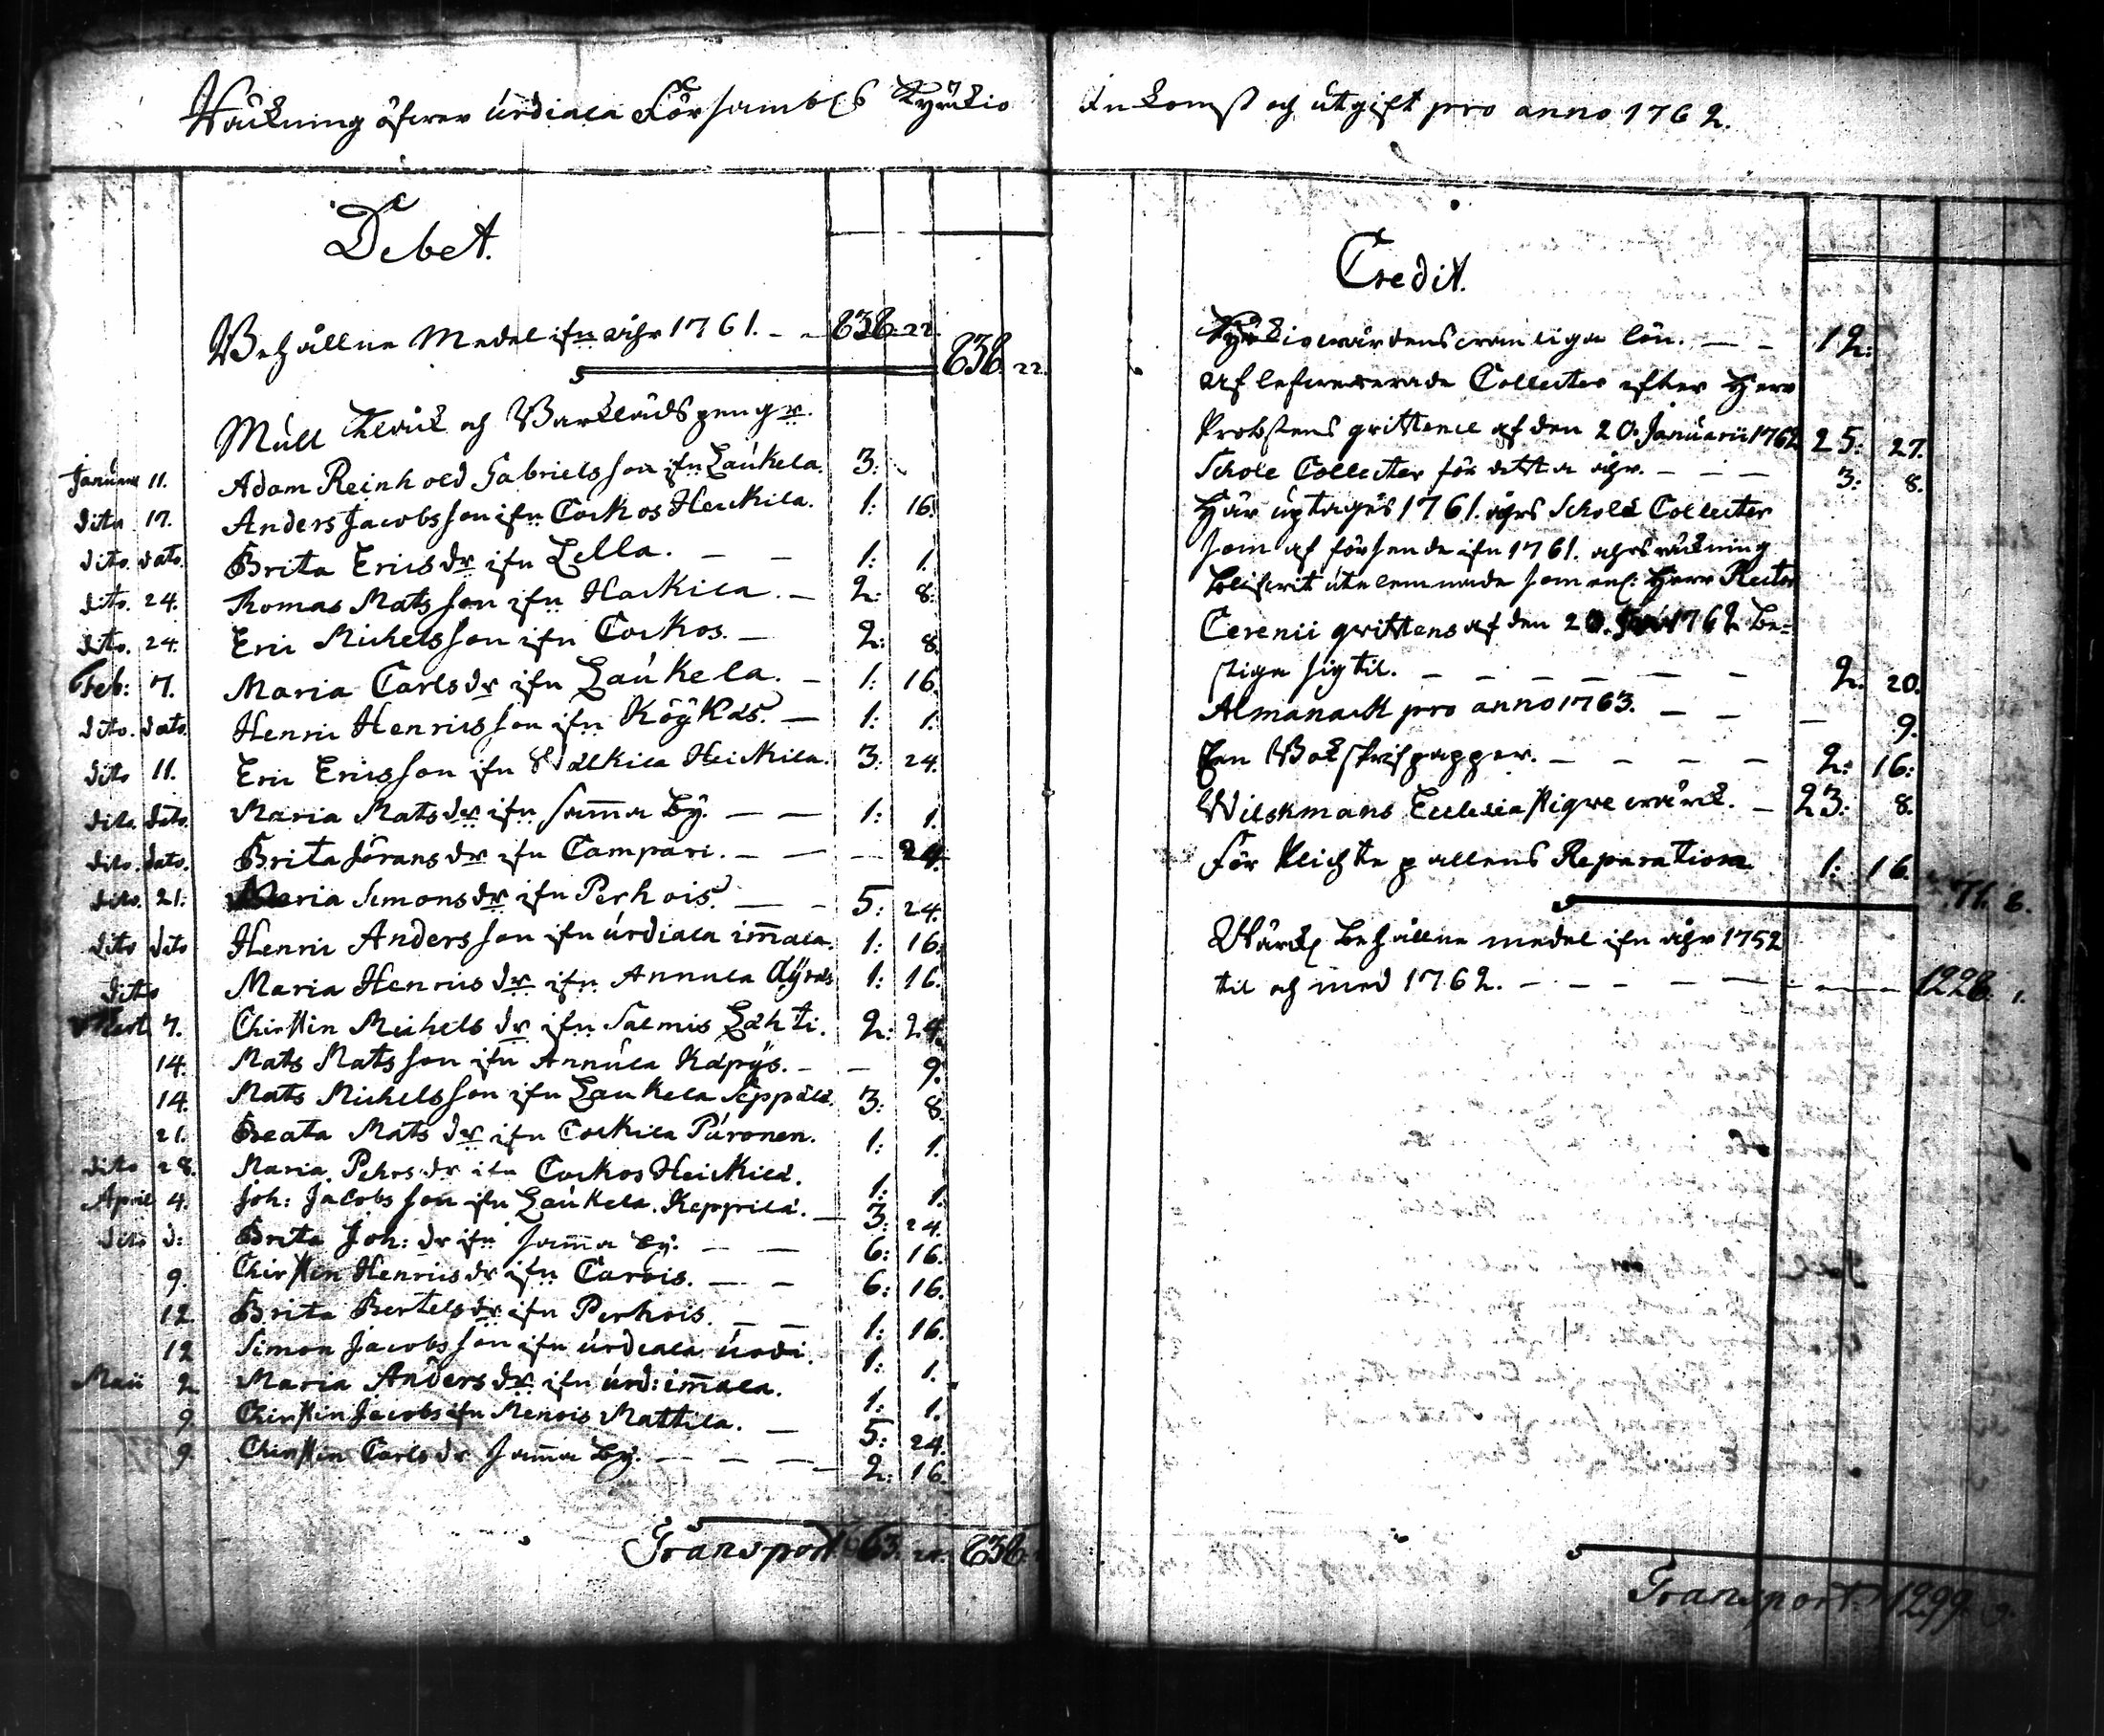 Räckning öfwer Urdiala Försambl:s Kyrckio Inkomst och utgift pro anno 1762.
Debet.
Behållne Medel ifrn åhr 1761. - - 838. 22. 838. 22.
Mull Klåck och Barklädspengr.
Januarii 11. Adam Reinhold Gabrielsson ifrn Laukela. 3:
dito 17. Anders Jacobsson ifrn Corkos Heickila. 1: 16.
dito. dato. Brita Ericsdr ifrn Lella. - - 1: 1.
dito. 24. Thomas Matsson ifrn Hackila. - 2: 8.
dito. 24. Eric Michelsson ifrn Corkos. - 2: 8.
Feb: 7. Maria Carlsdr ifrn Laukela. - 1: 16.
dito. dato. Henric Henricsson ifrn Köykäs. - 1: 1.
dito 11. Eric Ericsson ifrn Walkila Heickila. 3: 24.
dito. dato. Maria Matsdr ifrn samma by. - - 1: 1.
dito. dato. Brita Jöransdr ifrn Campari. - - - 24.
dito. 21: Maria Simonsdr ifrn Perhois. - - 5: 24.
dito dato Henric Andersson ifrn Urdiala immala. 1: 16.
dito Maria Henricsdr ifrn Annula Äyräs 1: 16.
Mart. 7. Chirstin Michelsdr ifrn Salmis Lahti. 2: 24.
14. Mats Matsson ifrn Annula Käpys. - - 9.
14. Mats Michelsson ifrn Laukela Seppälä. 3: 8.
21. Beata Matsdr ifrn Corkila Puronen. 1: 1.
dito 28. Maria Pehrsdr ifrn Corkos Heickilä. 1: 1.
April 4. Joh: Jacobsson ifrn Laukela Kepprilä. - 3: 24.
dito d: Brita Joh: dr ifrn samma by. - - 6: 16.
9. Chirstin Henricsdr ifrn Carois. - - 6: 16.
12. Brita Bertelsdr ifrn Perhois. - - 1: 16.
12 Simon Jacobsson ifrn Urdiala Urdi. 1: 1.
Maii 2 Maria Andersdr ifrn Urd: immala. 1: 1.
9. Chirstin Jacobs ifrn Menois Mattila. - 5: 24.
9. Chirstin Carlsdr samma by. - - - 2: 16.
Transport 63. 838.
Credit.
Kyrckiowärdens wanliga lön. - - 12:
Aflefwererade Collecter efter Herr
Probstens qvittence af den 20. Januarii 1762 25: 27.
Schole Collecter för detta åhr. - - - 3: 8.
Här uptages 1761. åhrs Schole Collecter
som af förseende ifrn 1761. åhrs räckning
blifwit utelemnade som enl: Herr Rector
Cerenii qvittens af den 20. 1762 be=
stiga sig til. - - - - - - 2. 20.
Almanack pro anno 1763. - - - 9.
En Bok skrifpapper. - - - - 2: 16:
Wilskmans Ecclesiastique wärck. - 23: 8.
För Plichte pallens Reparation 1: 16. 71. 8.
Kyrck: behållne medel ifrn åhr 1752
til och med 1762. - - - - - - 1228. 1.
Transport 1299. 9.